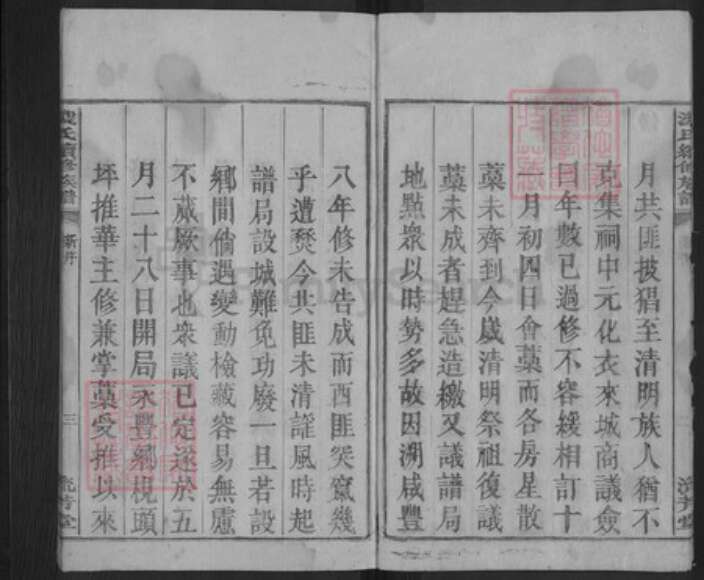 月共匪披猖至清明族人猶不
克集祠中元化衣來城商議僉
曰年數已過修不容緩相訂十
一月初四日會藁而各房星散
藁未齊到今歲清明祭祖復議
藁未成者趕急造繳又議譜局
地點衆以時勢多故因溯咸豐
八年修未告成而西匪突竄幾
乎遭燹今共匪未清謠風時起
譜局設城難免功廢一旦若設
鄉間倘遇變動檢藏容易無慮
不蕆厥事也衆議已定遂於五
月二十八日開局永豐鄉枧頭
坪推華主修兼掌藁受推以來
氏續修族譜
三
流芳堂